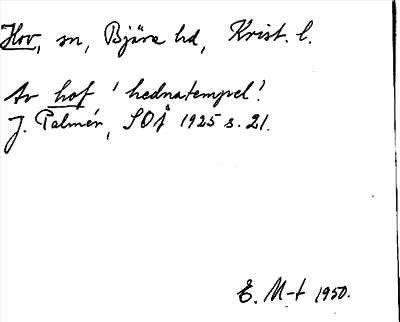 Hov, sn, Bjäre hd, Krist. l.
Av hof 'hednatempel'.
J. Palmér, SOÅ 1925 s. 21.
E. M-t 1950.